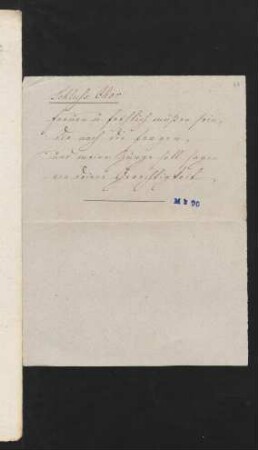 Schluss Chor
freuen u fröhlich müssen sein,
die nach dir fragen,
und meine Zunge soll sagen
von deiner Gerechtigkeit.
M B 90